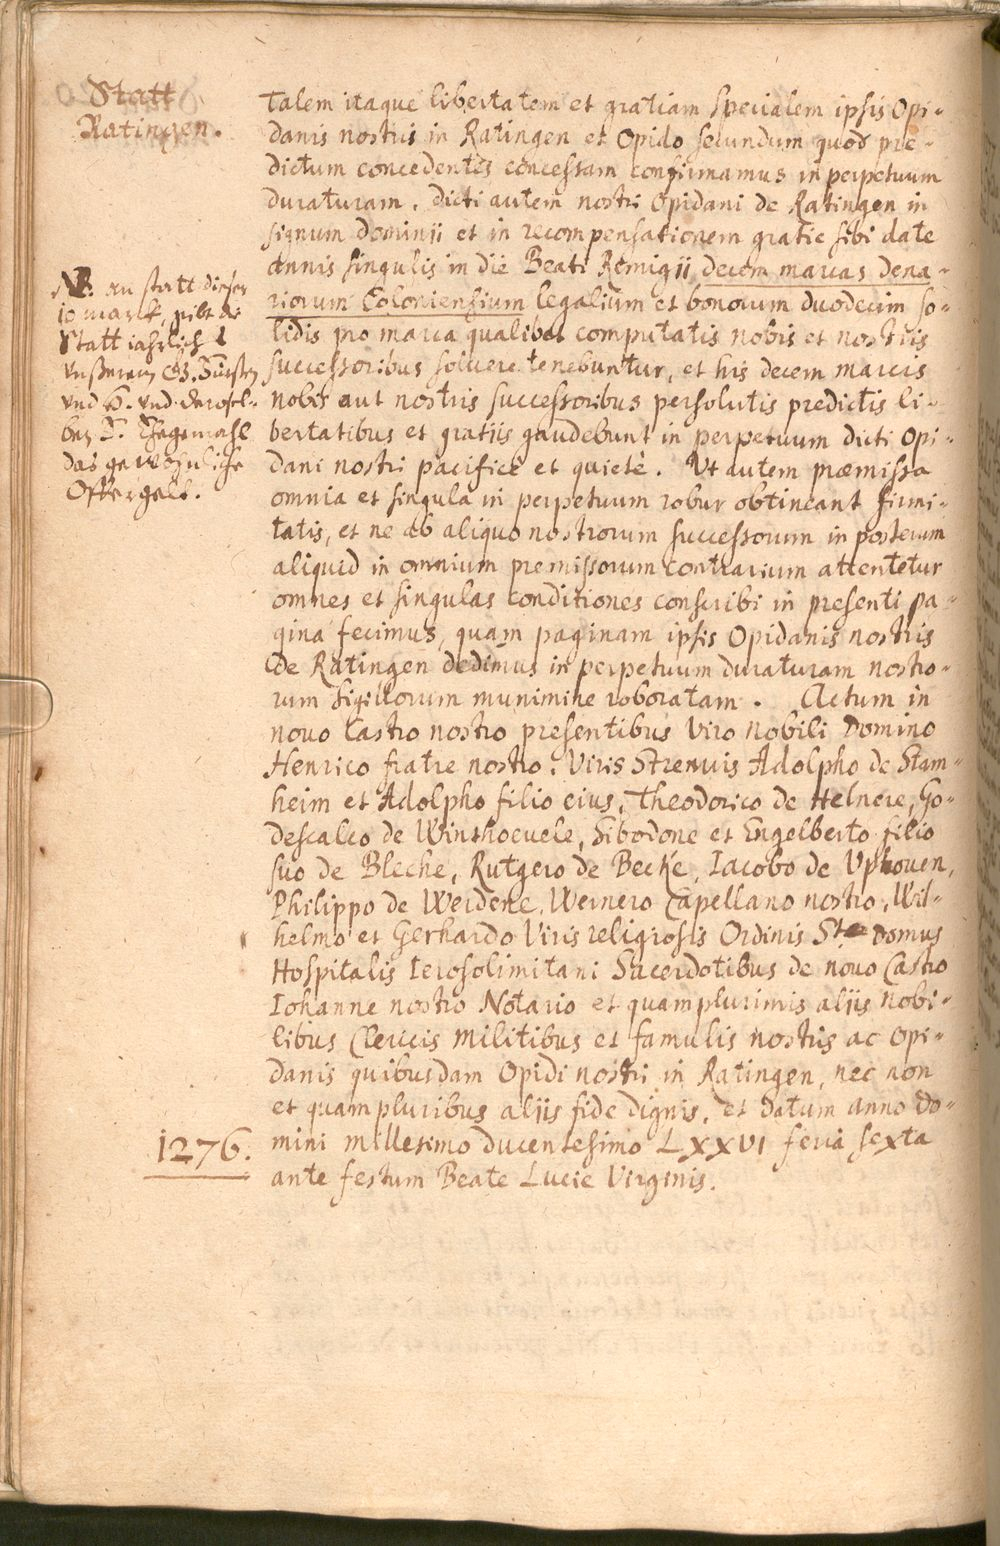 Statt
Ratingen.
talem itaque libertatem et gratiam specialem ipsis Opi-
danis nostris in Ratingen et Opido secundum quod pre-
dictum concedentes concessam confirmamus in perpetuum
duraturam. dicti autem nostri Opidani de Ratingen in
signum dominij et in recompensationem gratie sibi date
annis singulis in die Beati Remigij decem marcas dena-
riorum Coloniensium legalium et bonorum duodecim so-
lidis pro marca qualibet computatis nobis et nostris
successoribus soluere tenebuntur, et his decem marcis
nobis aut nostris successoribus persolutis predictis li-
bertatibus et gratijs gaudebunt in perpetuum dicti Opi-
dani nostri pacificè et quietè. Vt autem præmissa
omnia et singula in perpetuum robur obtineant firmi-
tatis, et ne ab aliquo nostrorum successorum in posterum
aliquid in omnium premissorum contrarium attentetur
omnes et singulas conditiones conscribi in presenti pa-
gina fecimus, quam paginam ipsis Opidanis nostris
de Ratingen dedimus in perpetuum duraturam nostro-
rum sigillorum munimine roboratam. Actum in
nouo Castro nostro presentibus Viro nobili Domino
Henrico fratre nostro. Viris Strenuis Adolpho de Stam-
heim et Adolpho filio eius, Theodorico de Helnere, Go-
descalco de Winthoeuele, Sibodone et Engelberto filio
suo de Bleche, Rutgero de Becke, Iacobo de Vphouen,
Philippo de Werdene, Wernero Capellano nostro, Wil-
helmo et Gerhardo Viris religiosis Ordinis Stæ domus
Hospitalis Ierosolimitani Sacerdotibus de nouo Castro
Iohanne nostro Notario et quamplurimis alijs nobi-
libus Clericis militibus et famulis nostris ac opi-
danis quibusdam Opidi nostri in Ratingen, nec non
et quampluribus alijs fide dignis, et datum anno Do-
mini millesimo ducentesimo LXXVI feria sexta
ante festum Beate Lucie Virginis.
NB. an statt dieser
10 marck, gibt die
Statt iahrlich
Vnserem G. Fürsten
vnd H. vnd derosel-
ben F. Ehegemahl
das gewöhnliche
Offergelt.
1276.